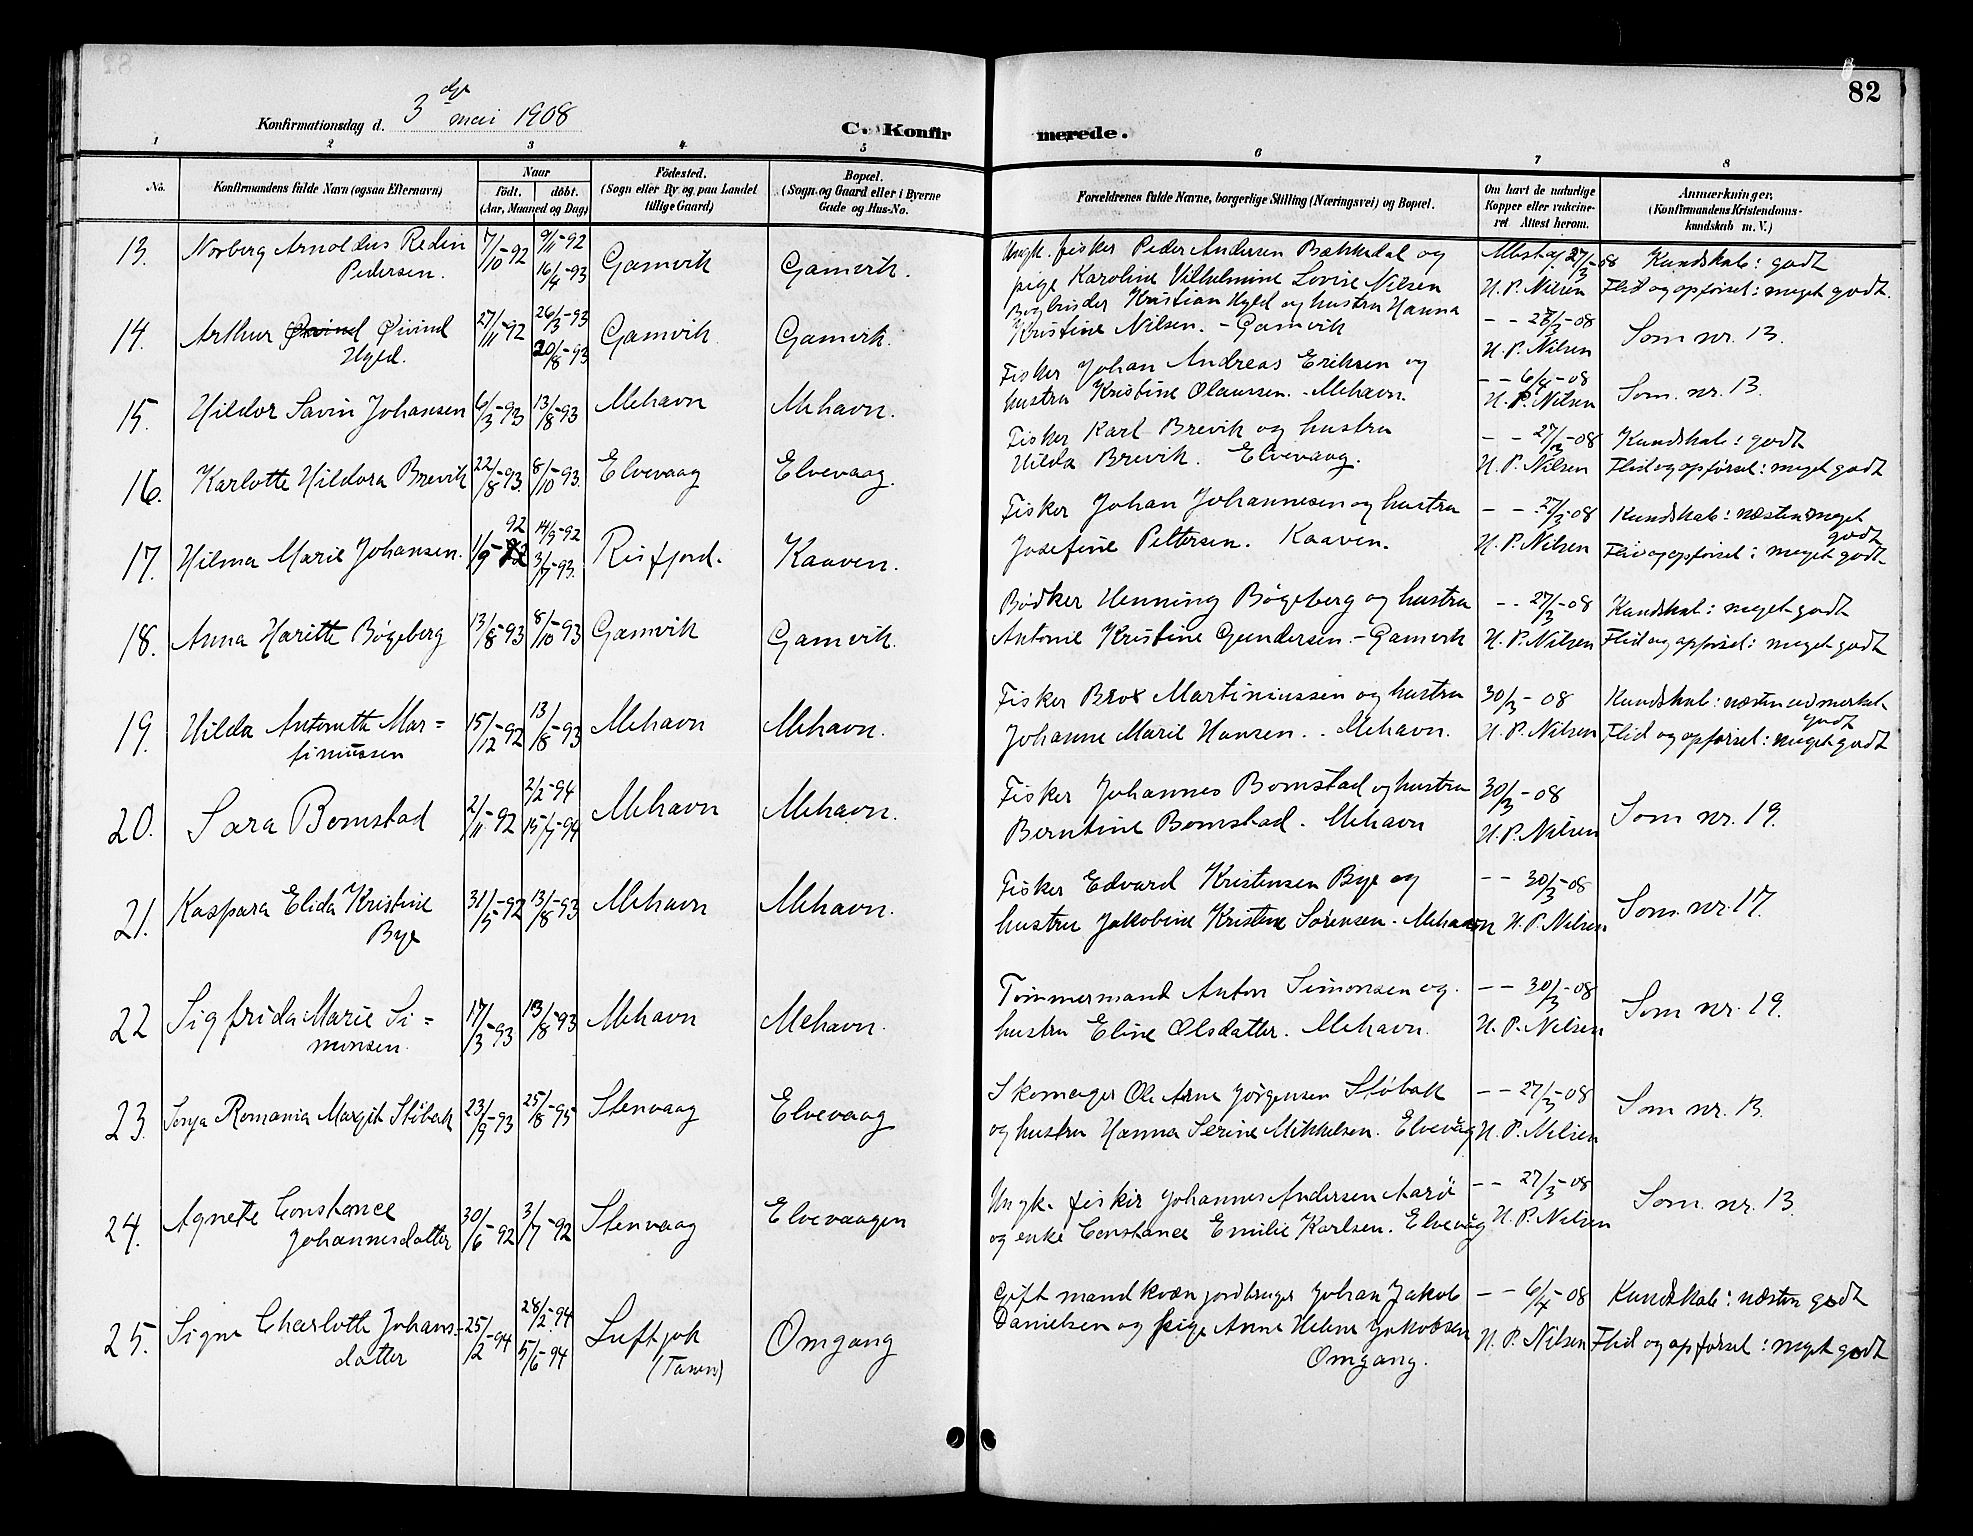 82
Konfirmationsdag d. 3 dje mai 1908
C. Konfirmerede.
1 2 3 4 5 6 7 8
No.
Konfirmandens fulde Navn (ogsaa Efternavn)
Naar
födt. döbt.
(Aar, Maaned og Dag)
Födested.
(Sogn eller By og paa Landet
tillige Gaard)
Bopæl.
(Sogn og Gaard eller i Byerne
Gade og Hus-No.
Forældrenes fulde Navne, borgerlige Stilling (Næringsvei) og Bopæl.
Om havt de naturlige
Kopper eller vakcine-
ret Attest herom.
Anmærkninger,
(Konfirmandens Kristendoms-
kundskab m. V.)
13. Norberg Arnoldus Redin
Pedersen.
7/10-92 9/11-92
16/4-93
Gamvik Gamvik.
Ungk. fisker Peder Andersen Bækkedal og
pige Karoline Vilhelmine Lovise Nilsen
27/3-08
H. P. Nilsen
Kundskab: godt
Flid og opførsel: meget godt.
14. Arthur Øivind Øivind
Hyld.
27/11-92 26/3-93
20/8-93
Gamvik Gamvik.
Kristian Hyld og hustru Hanna
Kristine Nilsen. - Gamvik
- - 28/3-08
H. P. Nilsen
Som nr. 13.
15. Hildor Savin Johansen 6/3-93 13/8-93 Mehavn Mehavn.
Fisker Johan Andreas Eriksen og
hustru Kristine Olaussen. Mehavn.
- - 6/4-08
H. P. Nilsen
Som. nr. 13.
16. Karlotte Hildora Brevik 22/8-93. 8/10-93. Elvevaag Elvevaag.
Fisker Karl Brevik og hustru
Hilda Brevik. Elvevaag.
- - 27/3-08
H. P. Nilsen
Kundskab: godt
Flid og opførsel: meget godt
17. Hilma Marie Johansen. 1/9-92 92 14/9-92
3/7-93.
Risfjord. Kaaven.
Fisker Johan Johannesen og hustru
Josefine Pettersen. Kaaven.
- - 27/3-08
H. P. Nilsen
Kundskab: næsten meget
godt
Flid og opførsel: meget godt.
18. Anna Haritte Bøgeberg 13/8-93 8/10-93 Gamvik Gamvik.
Bødker Henning Bøgeberg og hustru
Antonie Kristine Gundersen. - Gamvik
- - 27/3-08
H. P. Nilsen
Kundskab: meget godt
Flid og opførsel: meget godt
19. Hilda Antonette Mar=
tinussen
15/12-92 13/8-93 Mehavn Mehavn.
Fisker Brox Martinussen og hustru
Johanne Marie Hansen. - Mehavn.
30/3-08
H. P. Nilsen
Kundskab: næsten udmerket
godt
Flid og opførsel: meget godt
20. Sara Bomstad 2/11-92 2/2-94
15/7-94
Mehavn Mehavn.
Fisker Johannes Bomstad og hustru
Berntine Bomstad. Mehavn
30/3-08
H. P. Nilsen
Som nr. 19.
21. Kaspara Elida Kristine
Bye
31/5-92 13/8-93 Mehavn Mehavn.
Fisker Edvard Kristensen Bye og
hustru Jakobine Kristine Sørensen. Mehavn
- - 30/3-08
H. P. Nilsen
Som. nr. 17.
22 Sigfrida Marie Si=
monsen.
17/3-93 13/8-93 Mehavn Mehavn.
Tømmermand Anton Simonsen og
hustru Eline Olsdatter. Mehavn.
- - 30/3-08
H. P. Nilsen
Som nr. 19.
23. Sonja Romania Margit Støbak 23/9-93 25/8-95 Stenvaag Elvevaag
Skomager Ole Arne Jørgensen Støbak
og hustru Hanna Serine Mikkelsen. Elvevåg
- - 27/3-08
H. P. Nilsen
Som nr. 13.
24. Agnete Constance
Johannesdatter
30/6-92 3/7-92 Stenvaag Elvevaagen
Ungk. fisker Johannes Andersen Aarø
og enke Constance Emilie Karlsen. Elvevåg
- - 27/3-08
H. P. Nilsen
Som. nr. 13.
25. Signe Charlotte Johans-
datter
25/2-94 28/2-94
5/6-94
Luftjok
(Tanen)
Omgang
Gift mand kvæn jordbruger Johan Jakob
Danielsen og pige Anne Helene Jakobsen
Omgang.
- - 6/4-08
H. P. Nilsen
Kundskab: næsten godt
Flid og opførsel: meget godt